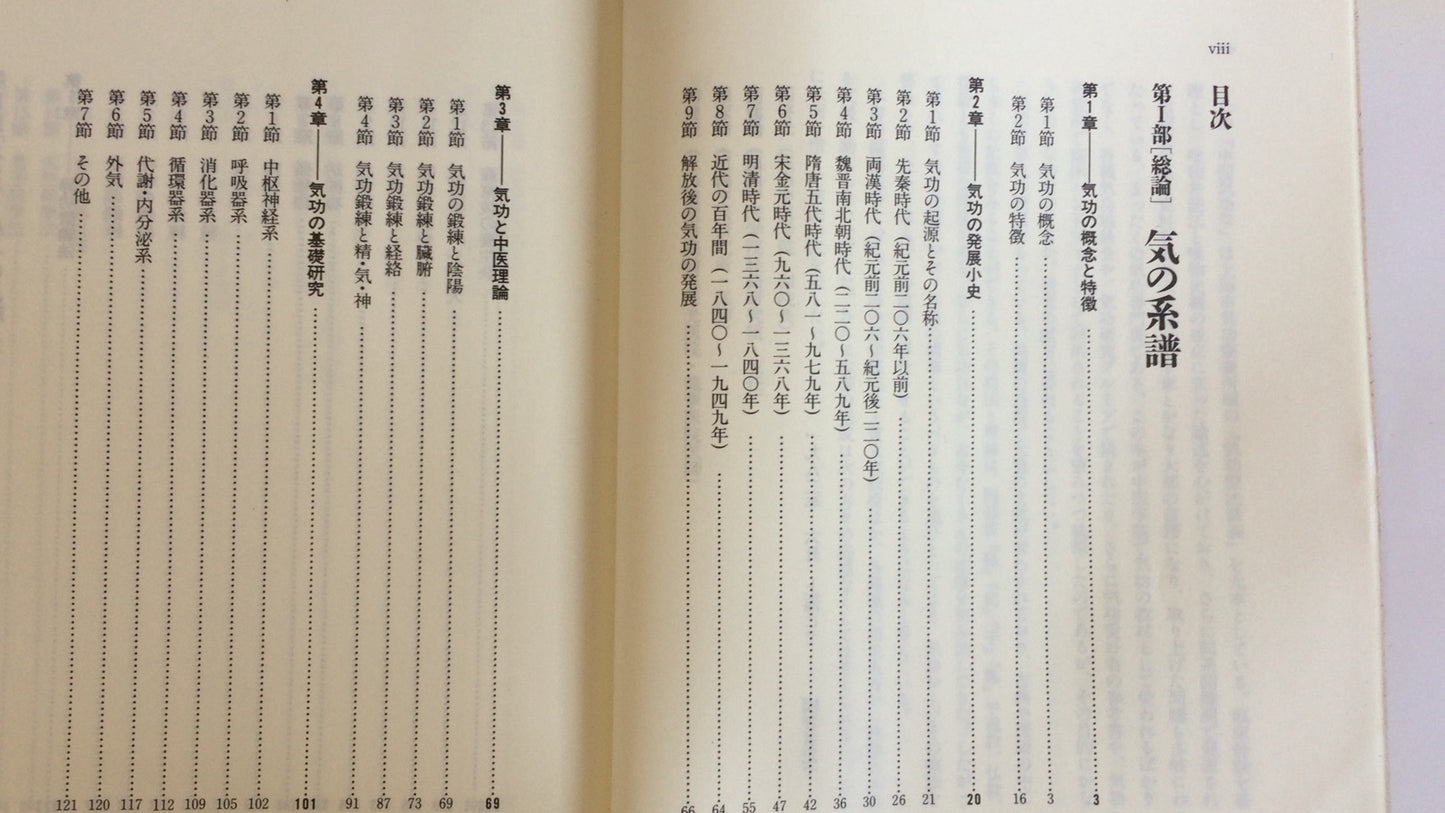 viii
目次
第Ⅰ部［総論］ 気の系譜
第1章――気功の概念と特徴……3
第1節 気功の概念……3
第2節 気功の特徴……16
第2章――気功の発展小史……20
第1節 気功の起源とその名称……21
第2節 先秦時代（紀元前二〇六年以前）……26
第3節 両漢時代（紀元前二〇六〜紀元後二二〇年）……30
第4節 魏晋南北朝時代（二二〇〜五八九年）……36
第5節 隋唐五代時代（五八一〜九七九年）……42
第6節 宋金元時代（九六〇〜一三六八年）……47
第7節 明清時代（一三六八〜一八四〇年）……55
第8節 近代の百年間（一八四〇〜一九四九年）……64
第9節 解放後の気功の発展……66
第3章――気功と中医理論……69
第1節 気功の鍛練と陰陽……69
第2節 気功鍛練と臓腑……73
第3節 気功鍛練と経絡……87
第4節 気功鍛練と精・気・神……91
第4章――気功の基礎研究……101
第1節 中枢神経系……102
第2節 呼吸器系……105
第3節 消化器系……109
第4節 循環器系……112
第5節 代謝・内分泌系……117
第6節 外気……120
第7節 その他……121